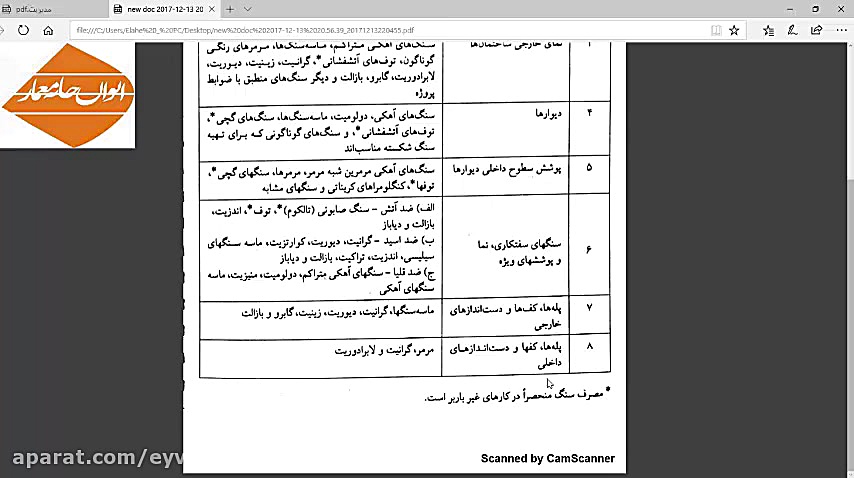 مدیریت.pdf
new doc 2017-12-13 20
file:///C:/Users/Elahe%20_%20PC/Desktop/new%20doc%202017-12-13%2020.56.39_20171213220455.pdf
ایوان جامه معمار
۳
نمای خارجی ساختمان‌ها
سنگ‌های آهکی متراکم، ماسه‌سنگ‌ها، مرمرهای رنگی
گوناگون، توف‌های آتشفشانی*، گرانیت، زینیت، دیوریت،
لابرادوریت، گابرو، بازالت و دیگر سنگ‌های منطبق با ضوابط
پروژه
۴
دیوارها
سنگ‌های آهکی، دولومیت، ماسه‌سنگ‌ها، سنگ‌های گچی*،
توف‌های آتشفشانی*، و سنگ‌های گوناگونی که برای تهیه
سنگ شکسته مناسب‌اند
۵
پوشش سطوح داخلی دیوارها
سنگ‌های آهکی مرمرین شبه مرمر، مرمرها، سنگهای گچی*،
توفها*، کنگلومراهای کربناتی و سنگهای مشابه
۶
سنگهای سفتکاری، نما
و پوششهای ویژه
الف) ضد آتش - سنگ صابونی (تالکوم)*، توف*، اندزیت،
بازالت و دیاباز
ب) ضد اسید - گرانیت، دیوریت، کوارتزیت، ماسه سنگهای
سیلیسی، اندزیت، تراکیت، بازالت و دیاباز
ج) ضد قلیا - سنگهای آهکی متراکم، دولومیت، منیزیت، ماسه
سنگهای آهکی
۷
پله‌ها، کف‌ها و دست‌اندازهای
خارجی
ماسه‌سنگها، گرانیت، دیوریت، زینیت، گابرو و بازالت
۸
پله‌ها، کفها و دست‌اندازهای
داخلی
مرمر، گرانیت و لابرادوریت
* مصرف سنگ منحصراً در کارهای غیر باربر است.
Scanned by CamScanner
aparat.com/eyv